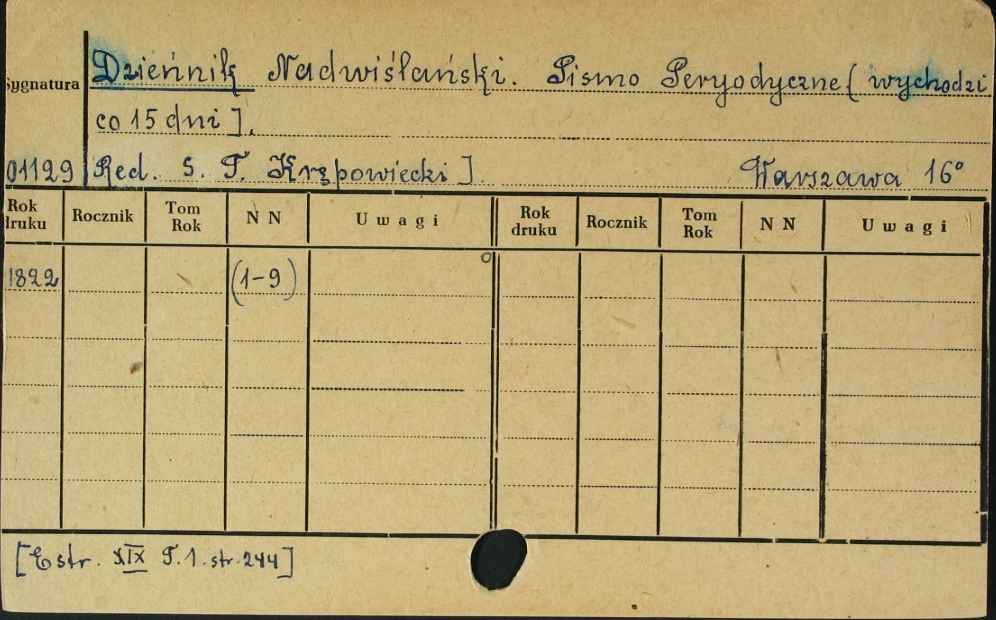 Sygnatura Dzieńnik Nadwiślański. Pismo Peryodyczne [wychodzi
co 15 dni].
01129 Red. S. T. Krępowiecki]. Warszawa 16°
Rok druku Rocznik Tom Rok N N Uwagi Rok druku Rocznik Tom Rok N N Uwagi
1822 (1-9)
[Estr. XIX T.1. str. 244]